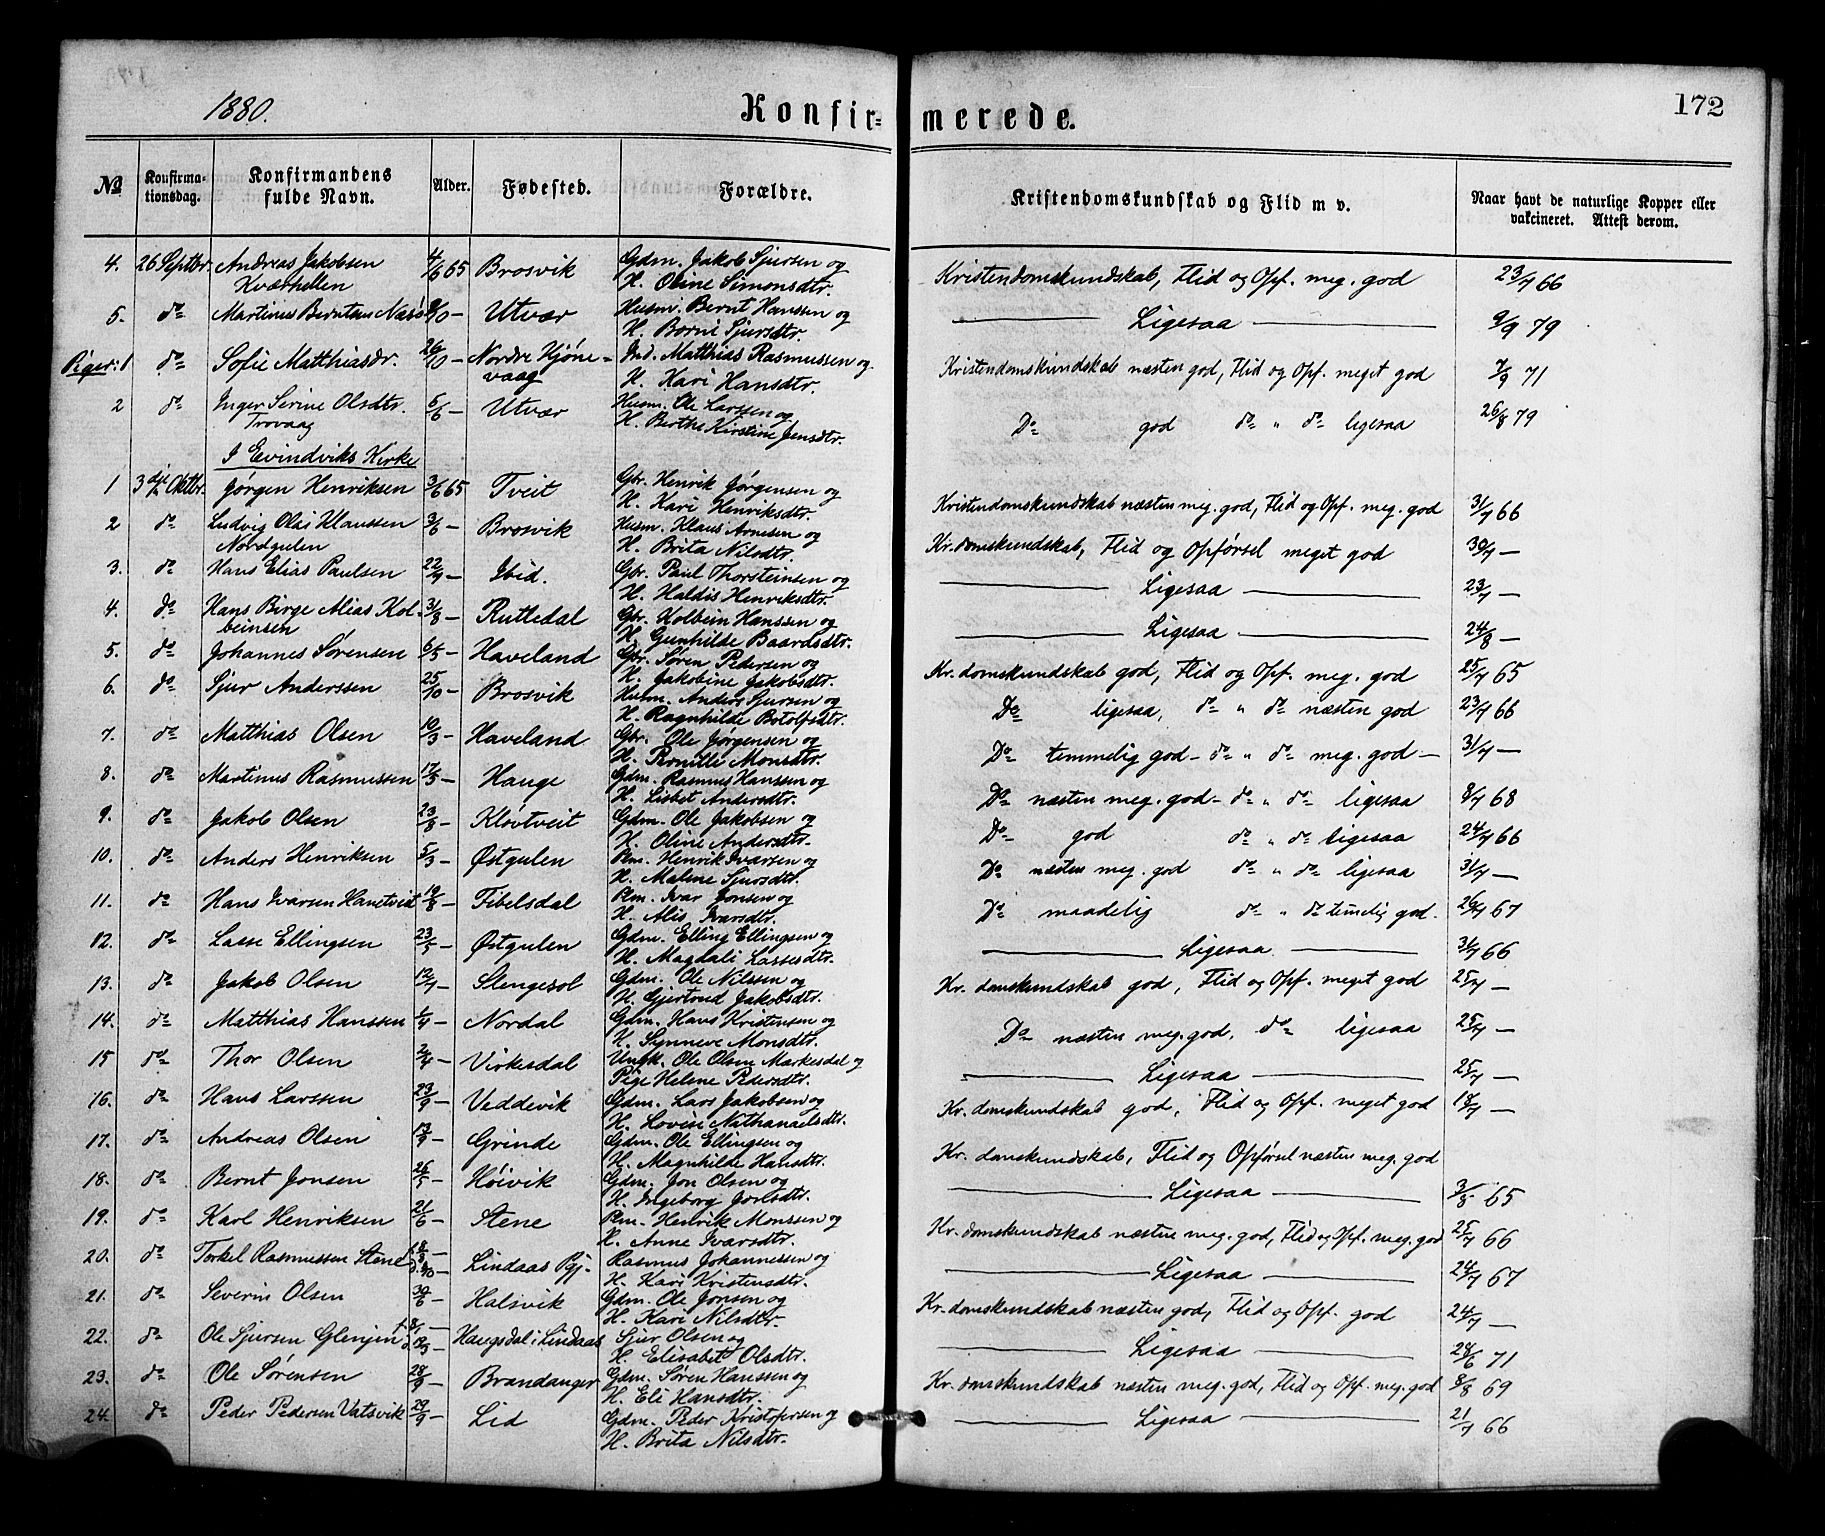 1880.
Konfirmerede.
172
No
Konfirmationsdag.
Konfirmandens fulde Navn.
Alder.
Fødested.
Forældre.
Kristendomskundskab og Flid m v.
Naar havt de naturlige Kopper eller vakcineret. Attest derom.
4. 26 Septbr. Andreas Jakobsen 4/6 65 Brosvik Gdm. Jakob Sjursen og Kristendomskundskab, Flid og Opf. meg. god 23/7 66
Kværhellen H. Oline Simonsdtr.
5. do Martinus Berntsen Næsø /10 — Utvær Husm. Bernt Hanssen og Ligesaa 9/9 79
H. Borni Sjursdtr.
Piger: 1 do Sofie Matthiasdr. 26/10 — Nordre Hjøne- Ind. Matthias Rasmussen og Kristendomskundskab næsten god, Flid og Opf. meget god 7/9 71
vaag H. Kari Hansdtr.
2 do Inger Serine Olsdtr. 5/6 — Utvær Husm. Ole Larssen og Do god do " do ligesaa 26/8 79
Trovaag H. Berthe Kirstine Jensdtr.
I Evindviks Kirke
1 3die Oktbr. Jørgen Henriksen 3/6 65 Tveit Gbr. Henrik Jørgensen og Kristendomskundskab næsten meg. god, Flid og Opf. meg. god 31/7 66
H. Kari Henriksdtr.
2 do Ludvig Olai Klaussen 3/6 — Brosvik Husm. Klaus Arnesen og Kr. domskundskab, Flid og Opførsel meget god 30/7 —
Nordgulen H. Brita Nilsdtr.
3. do Hans Elias Paulsen 22/7 — Ibid. Gbr. Paul Thorsteinsen og Ligesaa 23/7 —
H. Haldis Henriksdtr.
4. do Hans Birge Alias Kol- 31/8 — Rutledal Gbr. Kolbein Hanssen og Ligesaa 24/8 —
beinsen H. Gunhilde Baardsdtr.
5. do Johannes Sørensen 6/5 — Haveland Gbr. Søren Pedersen og Kr. domskundskab god, Flid og Opf. meg. god 25/7 65
H. Jakobine Jakobsdtr.
6. do Sjur Anderssen 25/10 — Brosvik Husm. Anders Sjursen og Do ligesaa, do " do næsten god 23/7 66
H. Ragnhilde Botolfsdtr.
7. do Matthias Olsen 10/3 — Haveland Gbr. Ole Jørgensen og Do temmelig god — do " do meg. god — 31/7 —
H. Pernille Monsdtr.
8. do Martinus Rasmussen 17/5 — Hauge Gdm. Rasmus Hanssen og Do næsten meg. god — do " do ligesaa 8/7 68
H. Lisbet Andersdtr.
9. do Jakob Olsen 23/8 — Kløvtveit Gdm. Ole Jakobsen og Do god do " do ligesaa 24/7 66
H. Oline Andersdtr.
10. do Anders Henriksen 5/3 — Østgulen Plm. Henrik Ivarsen og Do næsten meg. god do " do ligesaa 31/7 —
H. Malene Sjursdtr.
11. do Hans Ivarsen Hanetveit 19/8 — Tibelsdal Plm. Ivar Jonsen og Do maadelig do " do temelig god. 26/7 67
H. Alis Ivarsdtr.
12. do Lasse Ellingsen 23/5 — Østgulen Gdm. Elling Ellingsen og Ligesaa 31/7 66
H. Magdali Lassesdtr.
13. do Jakob Olsen 12/4 — Slengesol Gdm. Ole Nilssen og Kr. domskundskab god, Flid og Opf. meget god 25/7 —
H. Gjertrud Jakobsdtr.
14. do Matthias Hanssen 1/4 — Nordal Gdm. Hans Kristensen og Do næsten meg. god, do ligesaa 25/7 —
H. Synneve Monsdtr.
15 do Thor Olsen 2/4 — Virkesdal Ungk. Ole Olsen Markesdal og Ligesaa 25/7 —
Pige Helene Pedersdtr.
16. do Hans Larssen 23/9 — Veddevik Gdm. Lars Jakobsen og Kr. domskundskab god, Flid og Opf. meget god 18/7 —
H. Lovise Nathanaelsdtr.
17. do Andreas Olsen 13/9 — Grinde Gdm. Ole Ellingsen og Kr. domskundskab, Flid og Opførsel næsten meg. god
H. Magnhilde Hansdtr.
18. do Bernt Jonsen 26/5 — Høivik Gdm. Jon Olsen og Ligesaa 3/8 65
H. Ingeborg Jonsdtr.
19. do Karl Henriksen 21/6 — Stene Plm. Henrik Monssen og Kr. domskundskab næsten meg. god, Flid og Opf. meg. god 25/7 66
H. Anne Ivarsdtr.
20. do Torkel Rasmussen Stene — Lindaas Pgj. Rasmus Johannessen og Ligesaa 24/7 67
H. Kari Kristensdtr.
21. do Severin Olsen 30/6 — Halsvik Gdm. Ole Jonsen og Kr. domskundskab næsten god, Flid og Opf. god 24/7 —
H. Kari Nilsdtr.
22. do Ole Sjursen Glenjen — Haugsdal i Lindaas Sjur Olsen og Ligesaa 28/6 71
H. Elisabet Olsdtr.
23. do Ole Sørensen 28/9 — Brandanger Gdm. Søren Hanssen og Kr. domskundskab næsten meg. god, Flid og Opf. meg. god 8/8 69
H. Eli Hansdtr.
24. do Peder Pedersen Vatsvik 29/9 — Lid Gdm. Peder Kristofersen og Ligesaa 21/7 66
H. Brita Nilsdtr.